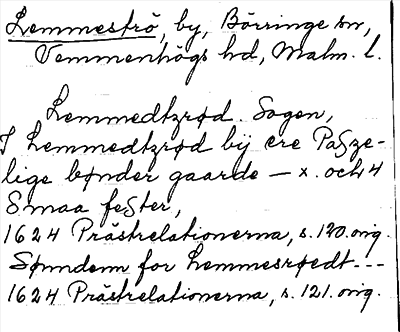 Lemmeströ, by, Börringe sn,
Vemmenhögs hd, Malm. l.
Lemmedtzrød. Sogen,
I Lemmedtzrød bÿ ere Paßze-
lige bønder gaarde – x. och 4
Smaa feßter,
1624 Prästrelationerna, s. 120. orig.
Sønndem for Lemmesrøedt---
1624 Prästrelationerna, s. 121. orig.